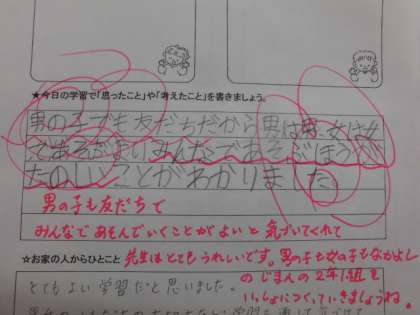 ★今日の学習で「思ったこと」や「考えたこと」を書きましょう。
男の子でも友だちだから男は男、女は女
であそぶよりみんなであそぶほうが
たのしいことがわかりました。
男の子も友だちで
みんなであそんでいくことがよいと気づいてくれて
★お家の人からひとこと 先生はとてもうれしいです。男の子も女の子もなかよし
のじまんの2年1組を
とてもよい学習だと思いました。
いっしょにつくっていきましょうね。